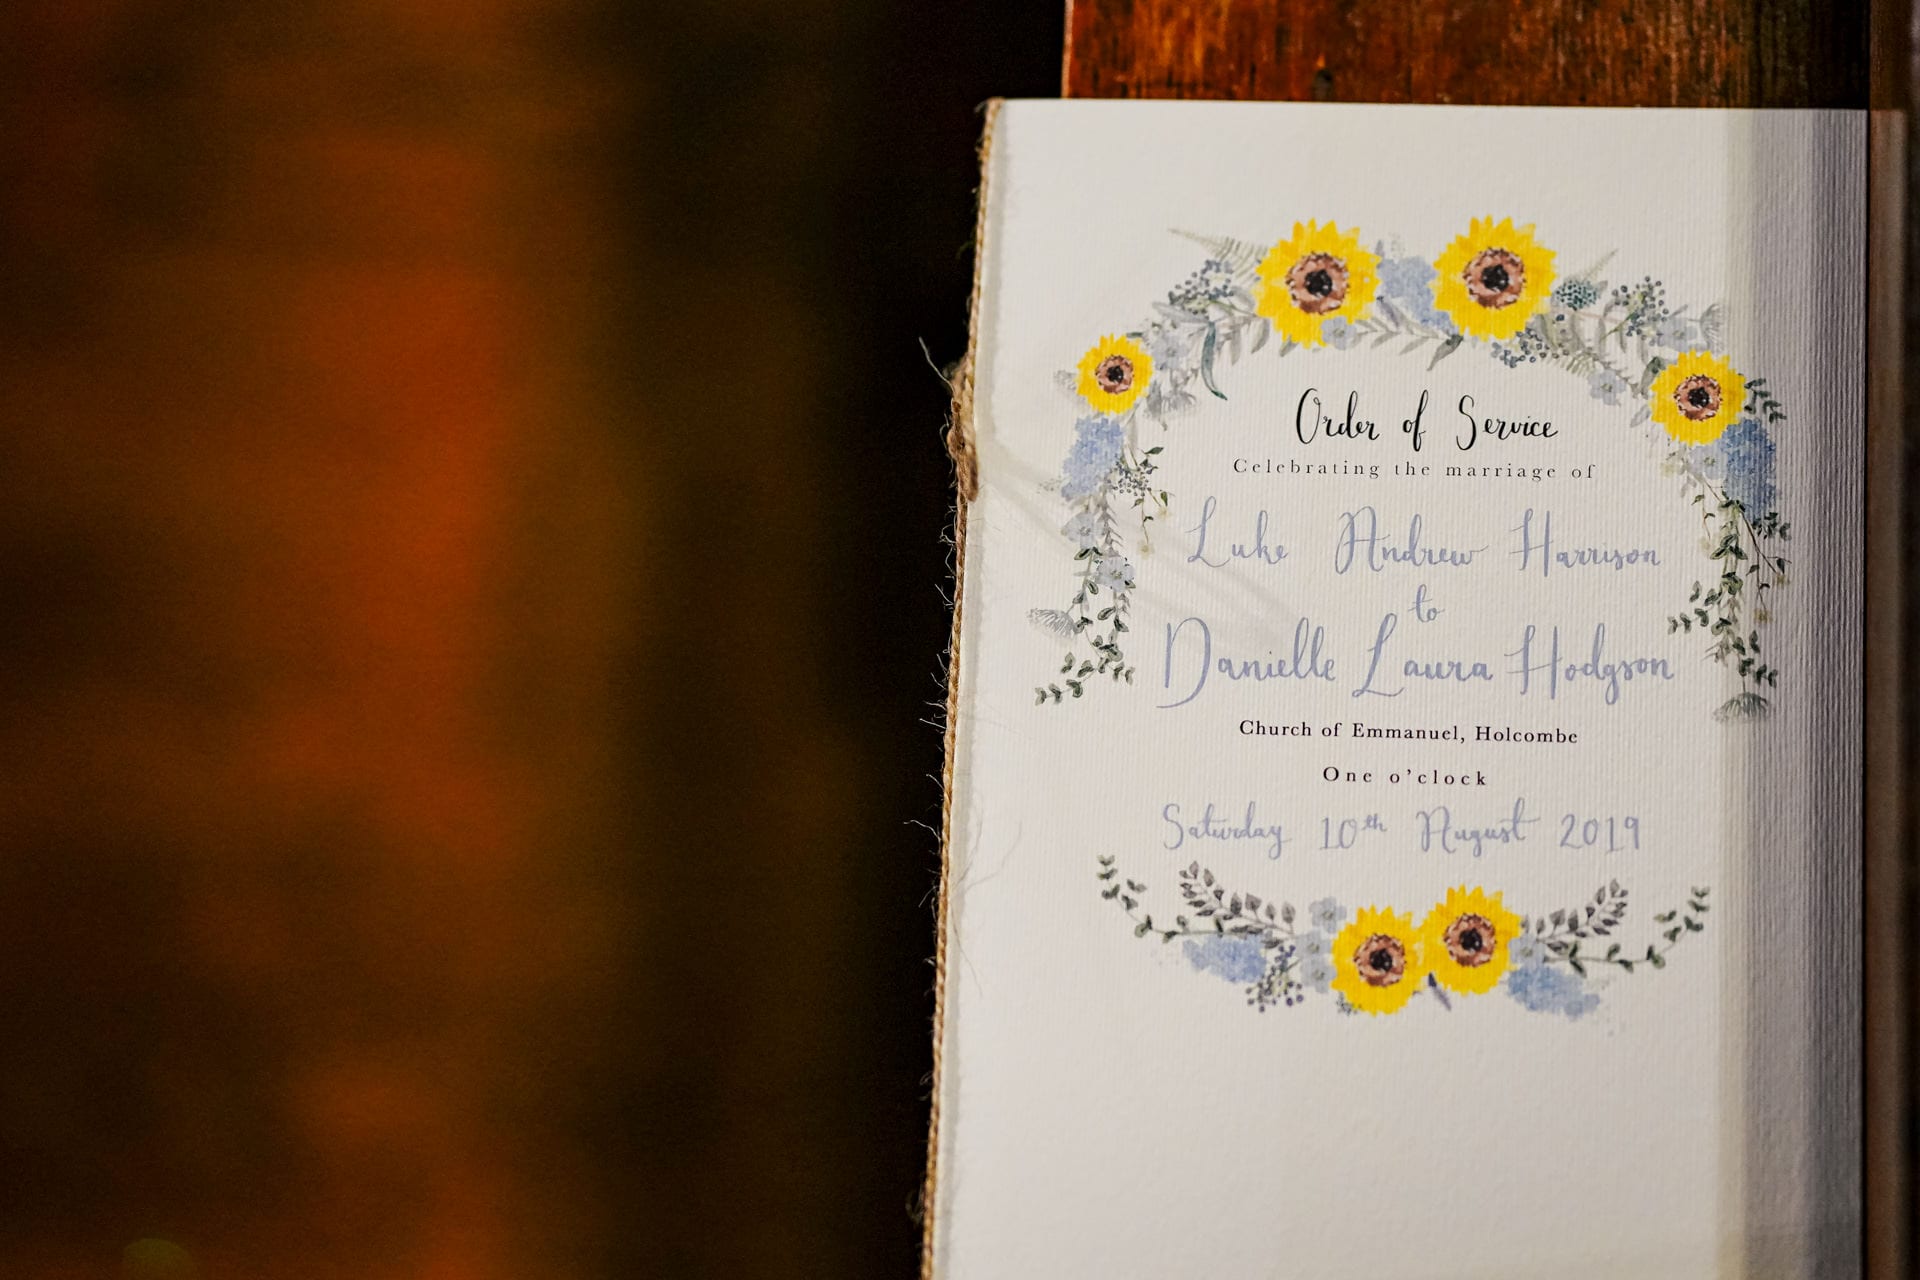 Order of Service
Celebrating the marriage of
Luke Andrew Harrison
to
Danielle Laura Hodgson
Church of Emmanuel, Holcombe
One o'clock
Saturday 10th August 2019